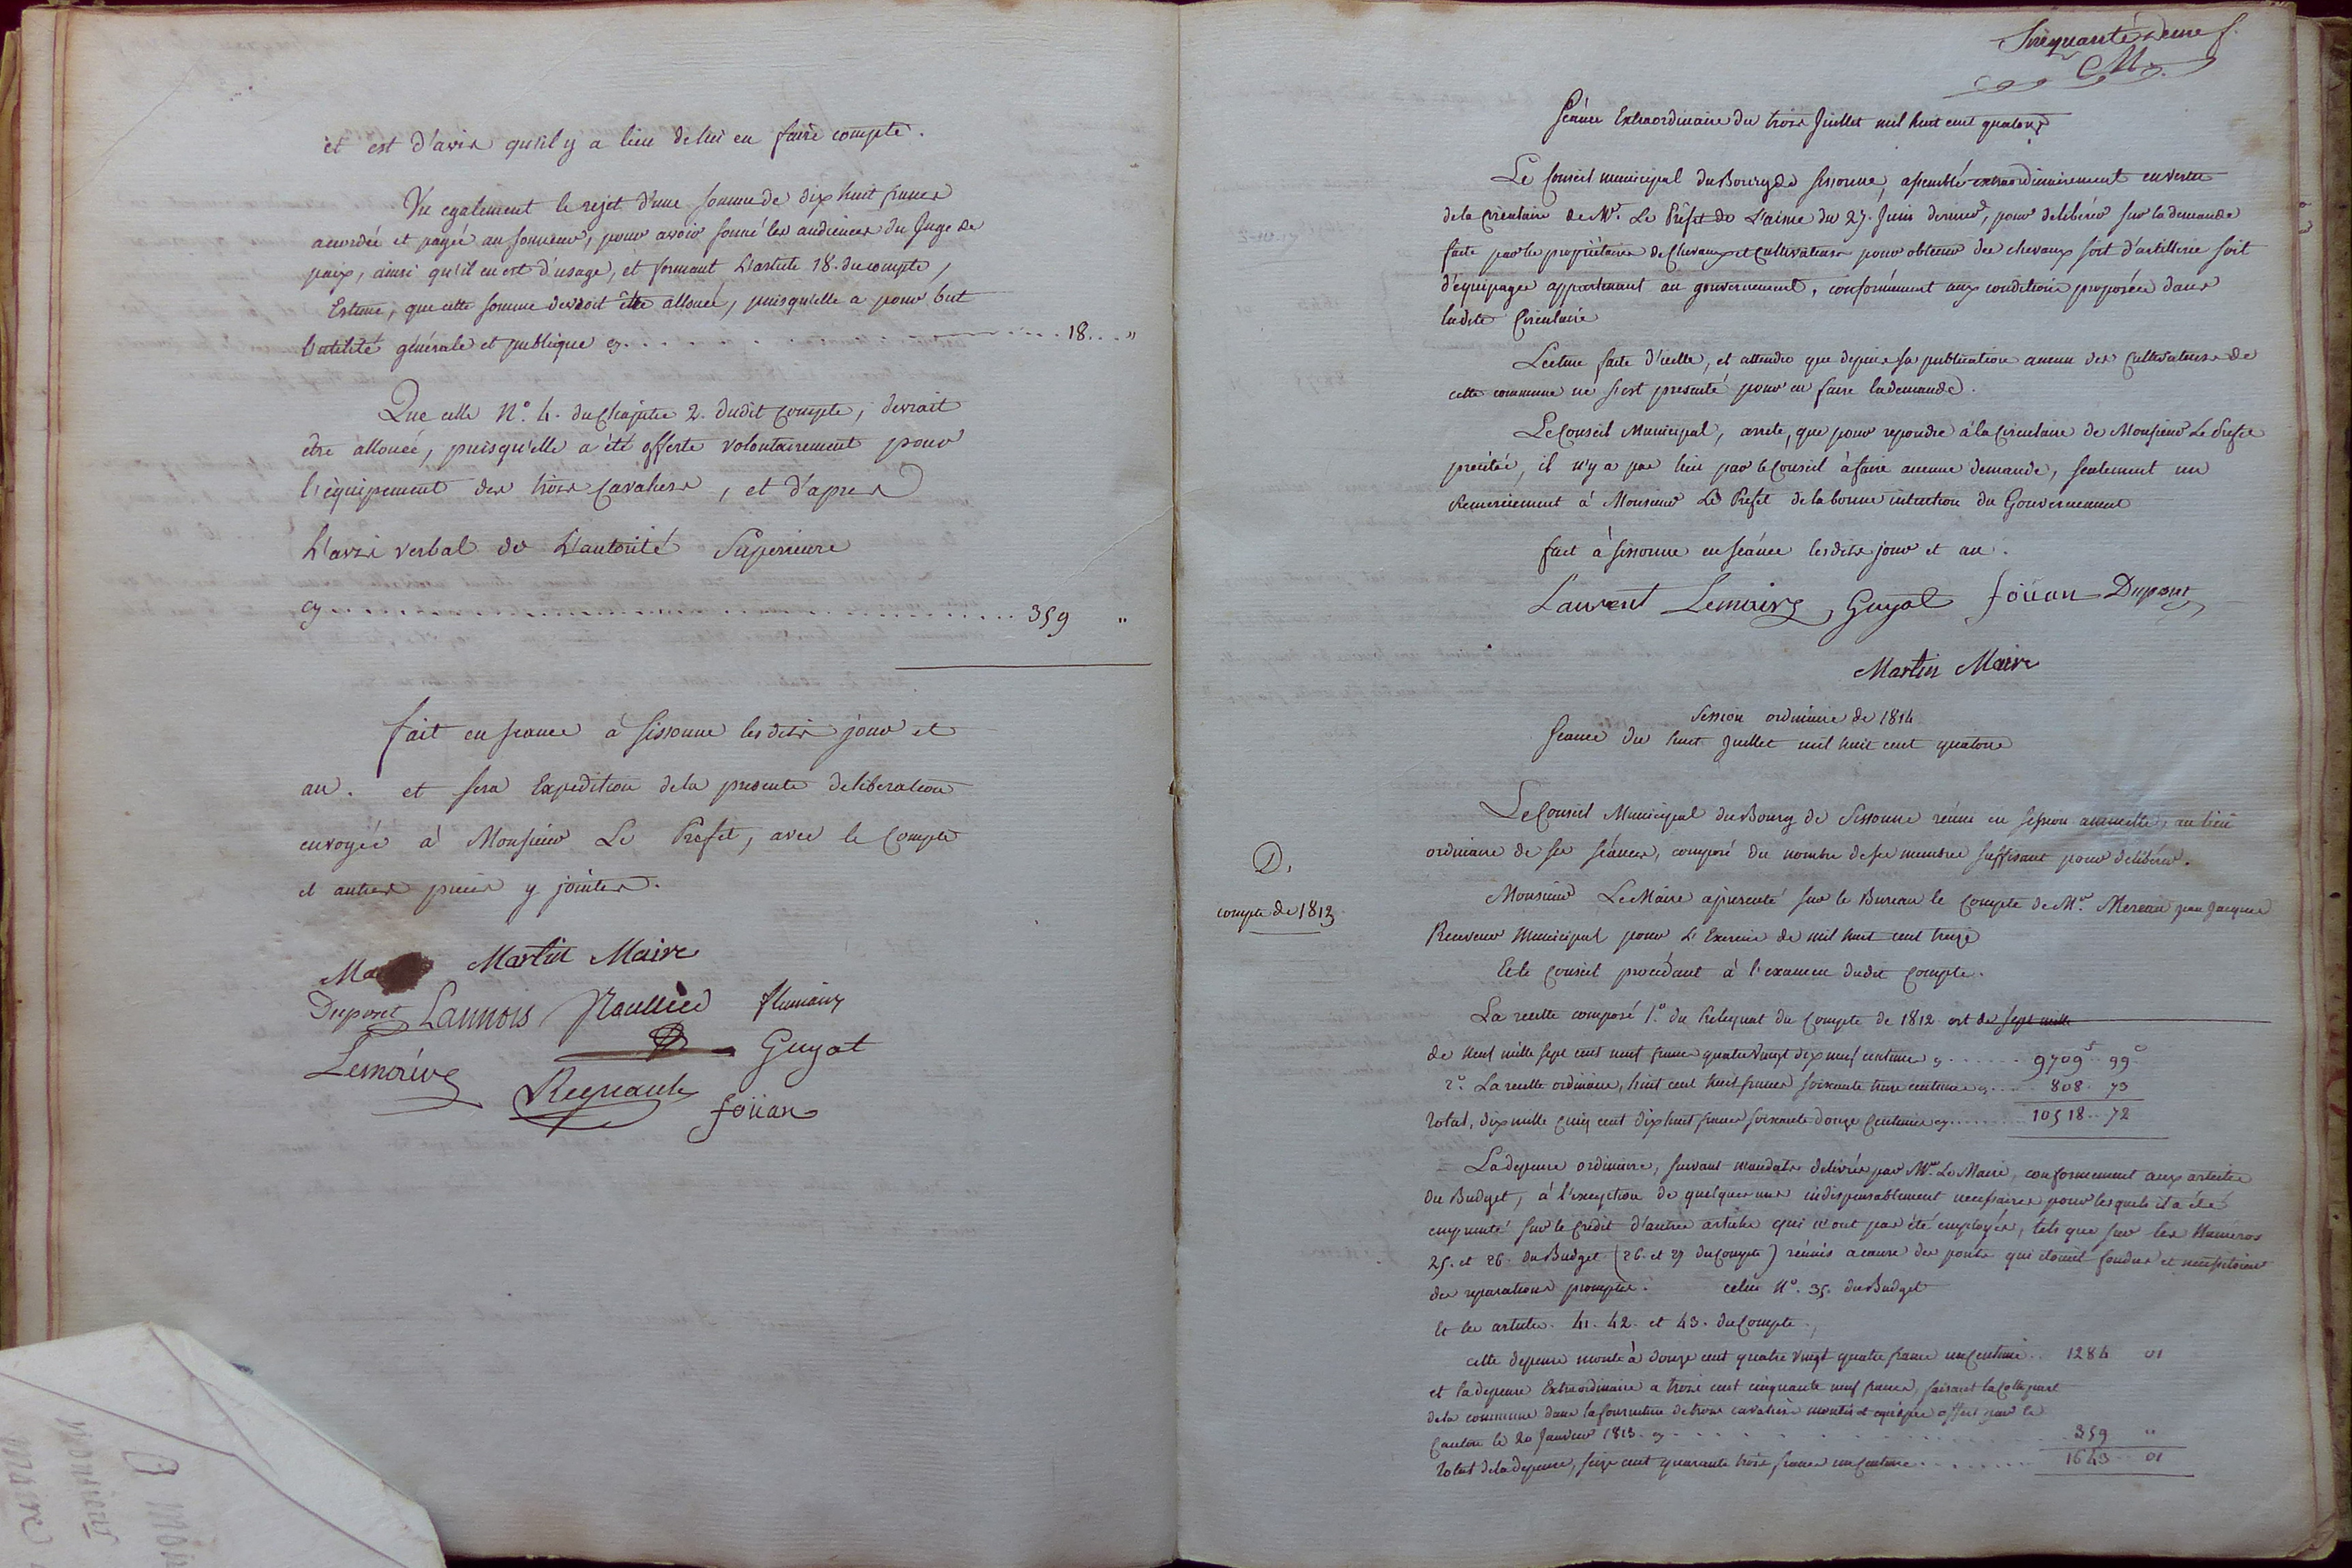 et est d'avis qu'il y a lieu de lui en faire compte.
Vu egalement le rejet d'une somme de dix huit francs
accordée et payée au sonneur, pour avoir sonné les audiences du Juge de
paix, ainsi qu'il en est d'usage, et formant L'article 18. du compte,
Estime, que cette somme devroit être allouée, puisqu'elle a pour but
l'utilité générale et publique cy. . . . . . . . . . . 18 . . . "
Que celle N.° 4. du Chapitre 2. dudit Compte, devrait
être allouée, puisqu'elle a été offerte volontairement pour
l'équipement des trois Cavaliers, et d'apres
L'avis verbal de L'autorité Supérieure
cy . . . . . . . . . . . . . . . . . . . . 359 "
fait en seance à Sissonne lesdits jour et
an. et sera Expedition de la presente deliberation
envoyée à Monsieur Le Prefet, avec le Compte
et autres pieces y jointes.
Martin Maire
Dupont Lannois
Lemaire Guyot
Regnault foüan
Séance Extraordinaire du trois Juillet mil huit cent quatorze
Le Conseil municipal du Bourg de Sissonne, assemblé extraordinairement en vertu
de la Circulaire de Mr. Le Préfet de L'aisne du 27. Juin dernier, pour deliberer sur la demande
faite par les propriétaires de Chevaux et Cultivateurs pour obtenir des chevaux soit d'artillerie soit
d'équipages appartenant au gouvernement, conformément aux conditions proposées dans
ladite Circulaire
Lecture faite d'icelle, et attendu que depuis sa publication aucun des Cultivateurs de
cette commune ne s'est presenté pour en faire la demande.
Le Conseil Municipal, arrete, que pour repondre à la Circulaire de Monsieur Le Prefet
precitée, il n'y a pas lieu par le Conseil à faire aucune demande, seulement un
Remerciement à Monsieur Le Prefet de la bonne intention du Gouvernement
fait à Sissonne en séance lesdits jour et an.
Laurent Lemaire Guyot foüan Dupont
Martin Maire
Session ordinaire de 1814
Seance du huit Juillet mil huit cent quatorze
Le Conseil Municipal du Bourg de Sissonne réuni en session annuelle, au lieu
ordinaire de ses séances, composé du nombre de ses membres suffisant pour delibérer.
D.
compte de 1813
Monsieur Le Maire a presenté sur le Bureau le Compte de Mr. Mereau jean Jacques
Receveur Municipal pour L'Exercice de mil huit cent treize
Et le Conseil procédant à l'examen dudit Compte.
La recette composé 1.° du Reliquat du Compte de 1812 est de sept mille
de Neuf mille sept cent neuf francs quatre vingt dix neuf centimes cy . . . . . 9709 f 99 c
2.° La recette ordinaire, huit cent huit francs soixante treize centimes cy . . . 808 . 73
Total, dix mille cinq cent dix huit francs soixante douze Centimes cy . . . . . 10518 . . 72
La depense ordinaire, suivant mandats delivrés par Mr. Le Maire, conformement aux articles
du Budget, à l'exception de quelques uns indispensablement necessaires pour lesquels il a été
emprunté sur le Crédit d'autres articles qui n'ont pas été employés, tels que sur les Numeros
25. et 26. du Budget (26. et 27 du Compte) réunis a cause des ponts qui etoient fondus et necessitoient
des reparations promptes. celui N°. 35. du Budget
Et les articles. 41. 42. et 43. du Compte.,
cette depense monte à douze cent quatre vingt quatre francs un Centime . . 1284 01
et la depense Extraordinaire a trois cent cinquante neuf francs, faisant la Cotte part
de la commune dans la fourniture de trois cavaliers montés et equipés offert par le
Canton le 20 Janvier 1813. cy . . . . . . . . . . . 359 "
Total de la depense, seize cent quarante trois francs un Centime . . . . . . . 1643 01